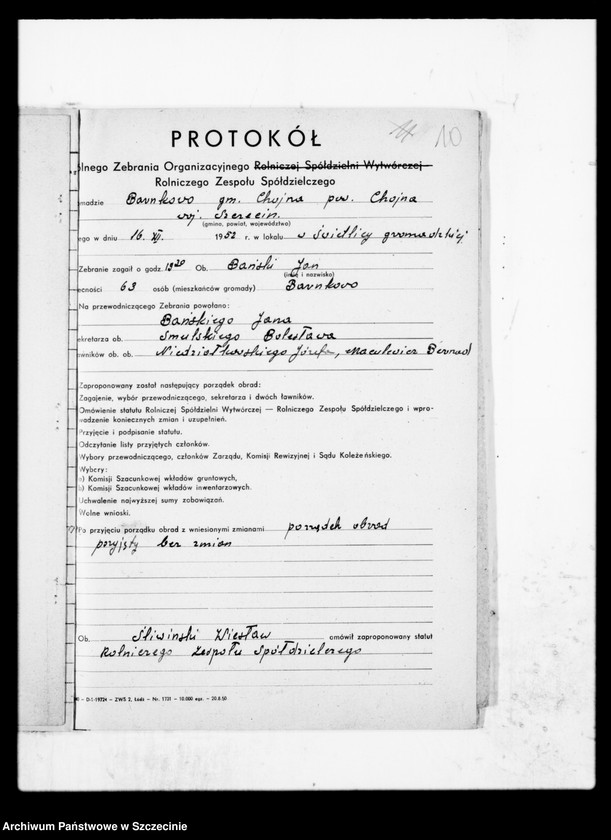 11 10
PROTOKÓŁ
ólnego Zebrania Organizacyjnego Rolniczej Spółdzielni Wytwórczej
Rolniczego Zespołu Spółdzielczego
omadzie Barnkowo gm. Chojna pow. Chojna
woj. Szczecin.
(gmina, powiat, województwo)
ego w dniu 16. XI. 1952 r. w lokalu w świetlicy gromadzkiej
Zebranie zagaił o godz. 19 20 Ob. Bański Jan
(imię i nazwisko)
ecności 63 osób (mieszkańców gromady) Barnkowo
Na przewodniczącego Zebrania powołano:
Bańskiego Jana
ekretarza ob. Smulskiego Bolesława
awników ob. ob. Niedziałkowskiego Józefa, Maculewicz Bernad
Zaproponowany został następujący porządek obrad:
Zagajenie, wybór przewodniczącego, sekretarza i dwóch ławników.
Omówienie statutu Rolniczej Spółdzielni Wytwórczej — Rolniczego Zespołu Spółdzielczego i wpro-
wadzenie koniecznych zmian i uzupełnień.
Przyjęcie i podpisanie statutu.
Odczytanie listy przyjętych członków.
Wybory przewodniczącego, członków Zarządu, Komisji Rewizyjnej i Sądu Koleżeńskiego.
Wybory:
a) Komisji Szacunkowej wkładów gruntowych,
b) Komisji Szacunkowej wkładów inwentarzowych.
Uchwalenie najwyższej sumy zobowiązań.
Wolne wnioski.
Po przyjęciu porządku obrad z wniesionymi zmianami porządek obrad
przyjęty bez zmian
Ob. Śliwiński Wiesław omówił zaproponowany statut
Rolniczego Zespołu Spółdzielczego
D-1-19724 — ZWS 2, Łódź — Nr. 1731 — 10.000 egz. — 20.8.50
Archiwum Państwowe w Szczecinie